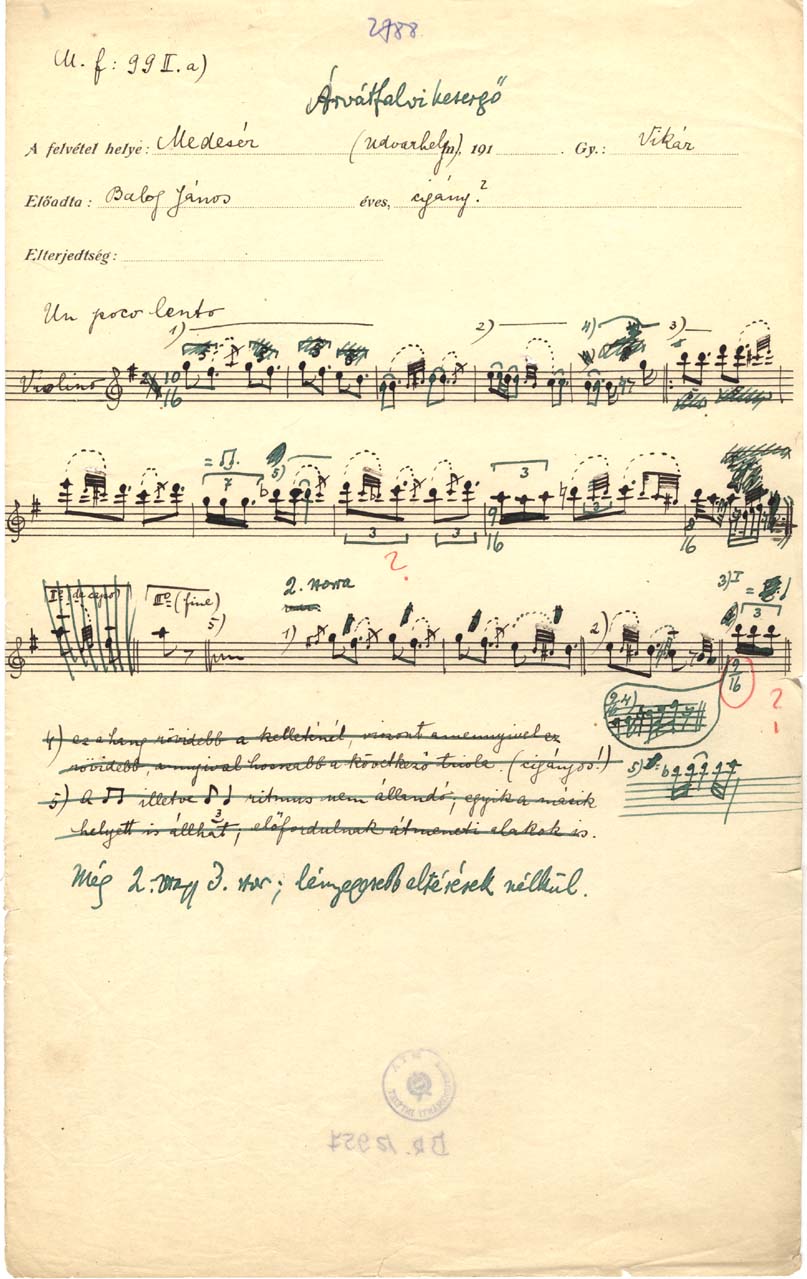 2788
M. f: 99 II. a)
Árvátfalvi kesergő
A felvétel helye: Medesér (Udvarhely m), 191 . Gy.: Vikár
Előadta: Balog János éves, cigány?
Elterjedtség:
Un poco lento
1) 2) 4) 3)
Violino 10 16
= 5)
7 3
3 3 9 16 3 8 16
?
Iº da capo IIIº (fine) 5) 2. strofa 3) I =
1) 2) 3
9 16
?
2.4)
4) ez a hang rövidebb a kelleténél, viszont amennyivel ez
rövidebb, annyival hosszabb a következő triola. (cigányos!)
5) A illetve ritmus nem állandó, egyik a másik
helyett is állhat; előfordulnak átmeneti alakok is.
5)
Még 2. vagy 3. str; lényegesebb eltérések nélkül.
BR. 12957